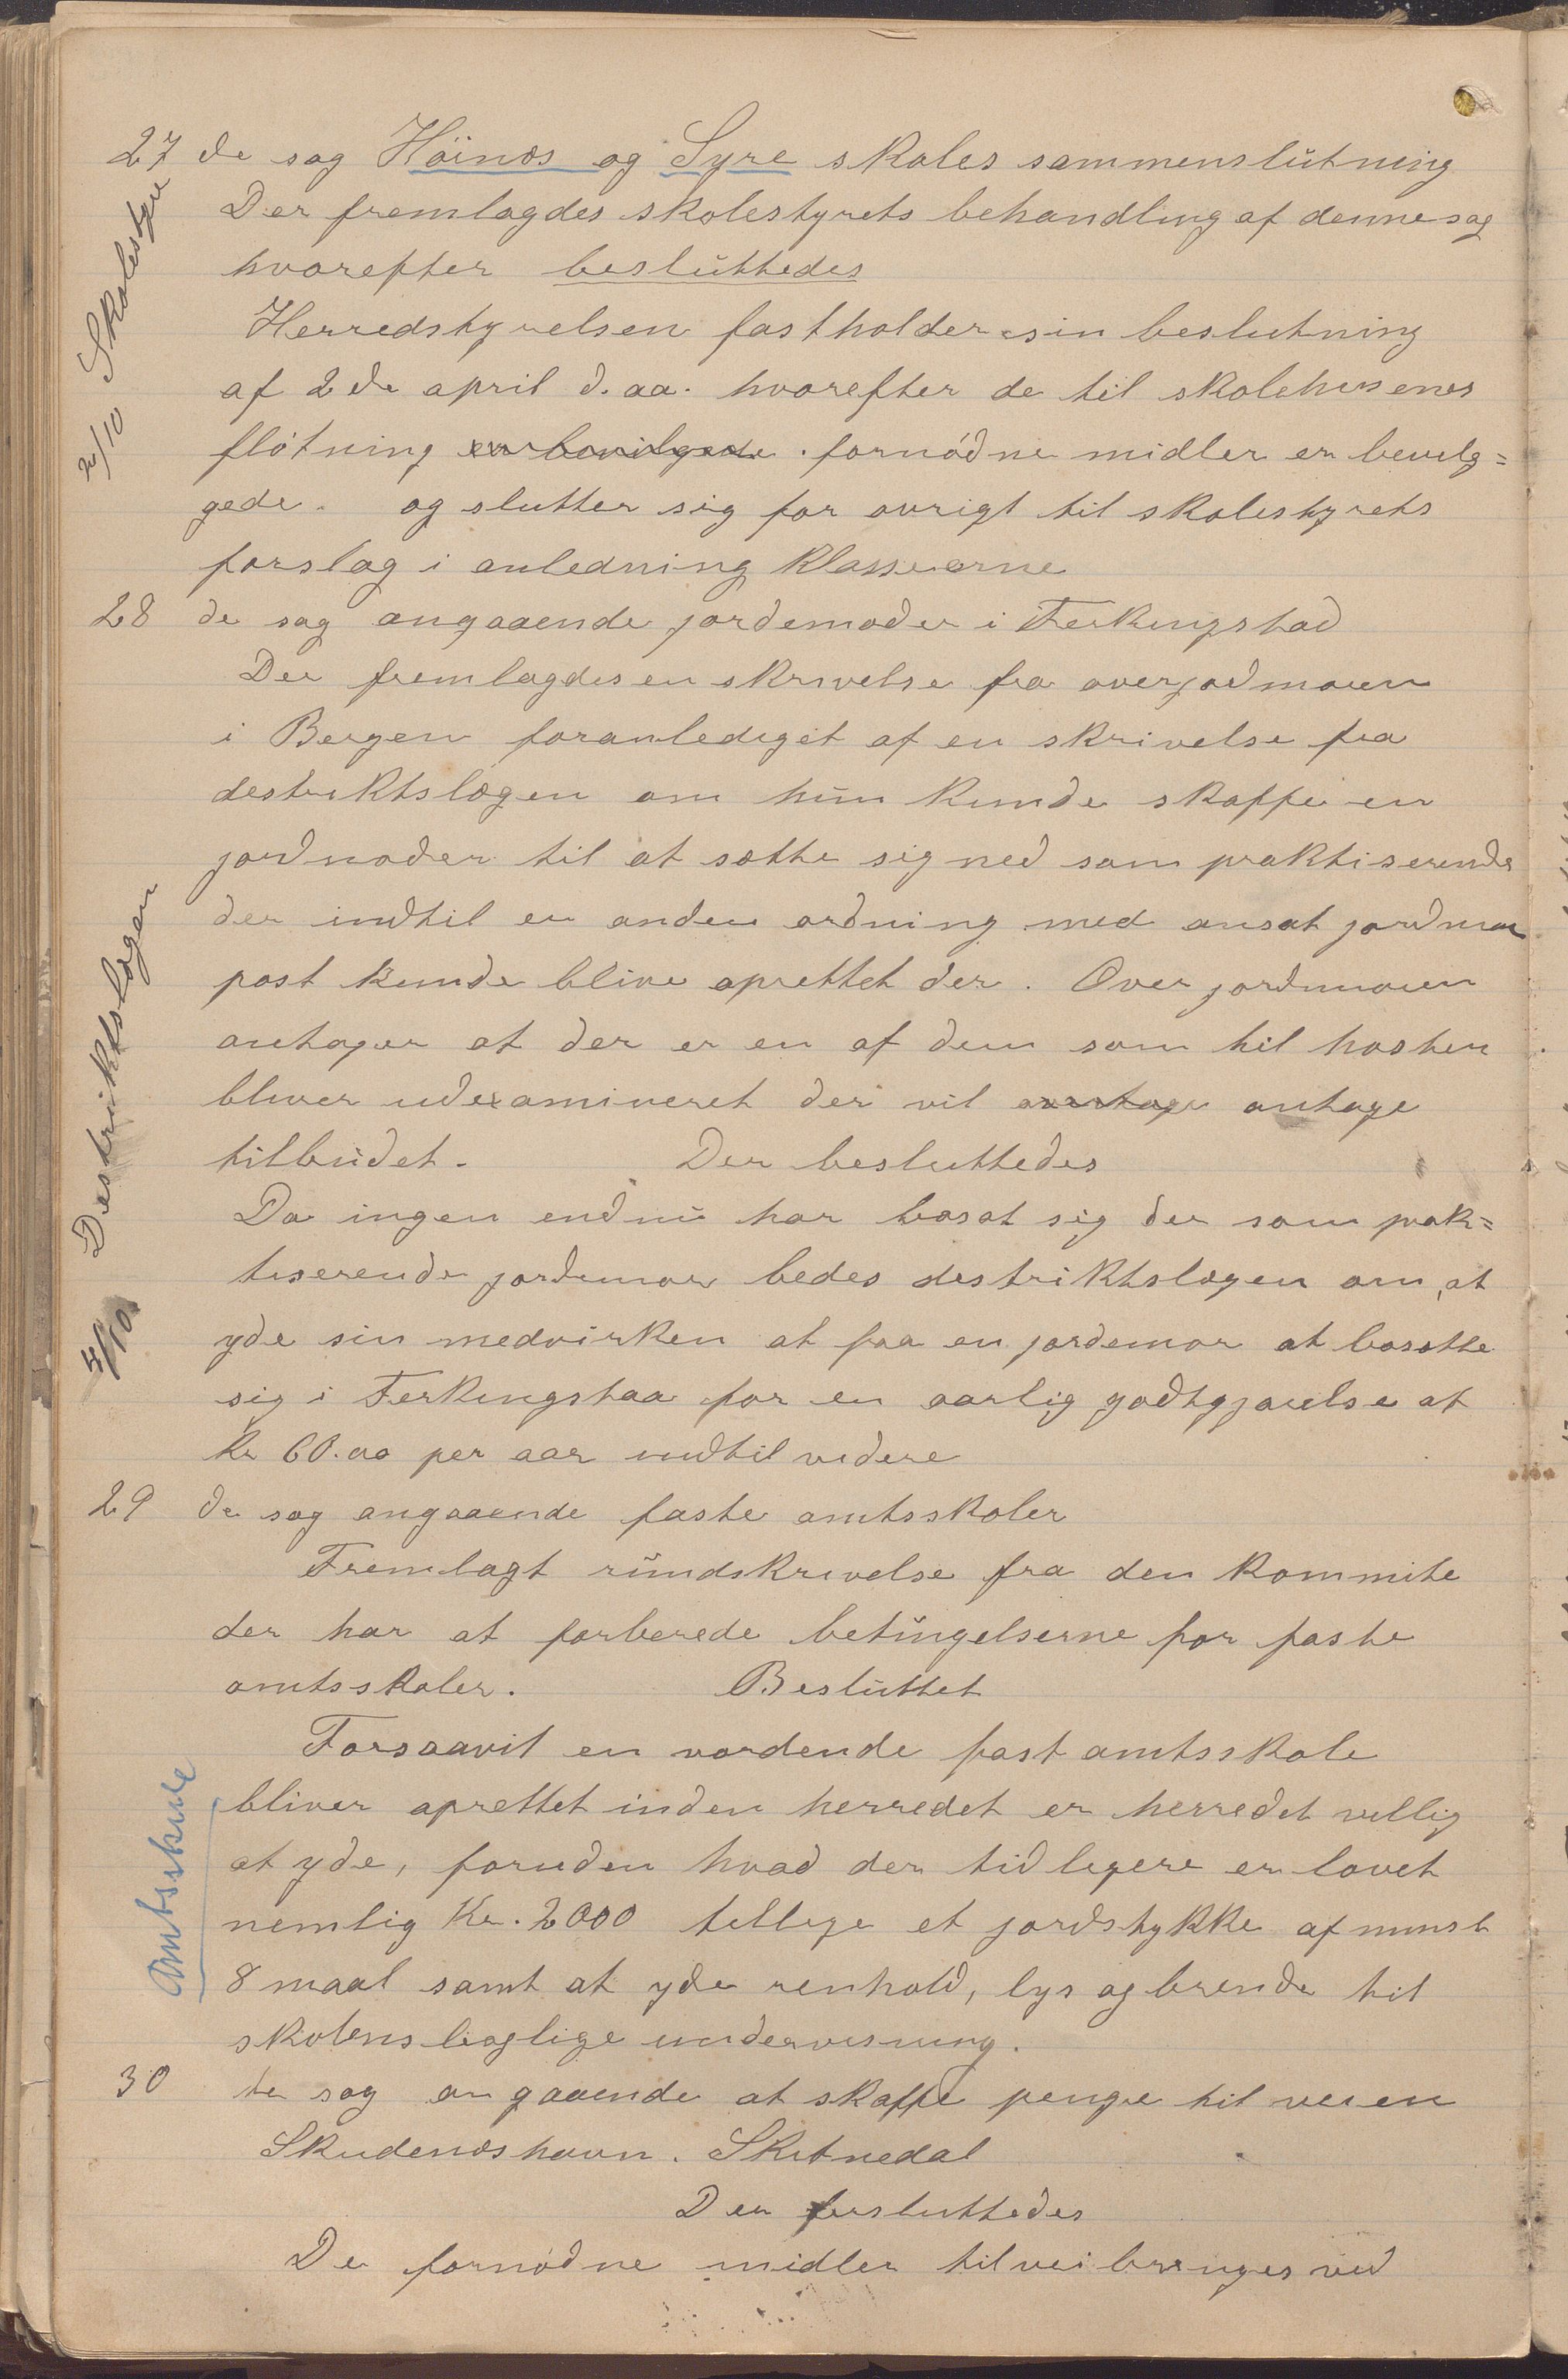 27 de sag Höinæs og Syre skoles sammenslutning
Der fremlagdes skolestyrets behandling af denne sag
hvorefter besluttedes
Herredstyrelsen fastholder sin beslutning
af 2de april d. aa. hvorefter de til skolehusenes
flötning er bevilgede fornödne midler er bevilg=
gede. og slutter sig for ovrigt til skolestyrets
forslag i anledning klasserne
2/10 Skolestyre
28 de sag angaaende jordemoder i Ferkingstad
Der fremlagdes en skrivelse fra overjordmoren
i Bergen foranlediget af en skrivelse fra
destriktslægen om hun kunde skaffe en
jordmoder til at sætte sig ned som praktiserende
der indtil en anden ordning med ansat jordmor
post kunde blive oprettet der. Over jordmoren
antager at der er en af dem som til hosten
bliver udexamineret der vil antage
tilbudet. Der besluttedes
Da ingen endnu har bosat sig der som prak=
tiserende jordemor bedes destriktslægen om, at
yde sin medvirken at faa en jordemor at bosætte
sig i Ferkingstaa for en aarlig godtgjorelse af
kr 60.00 per aar indtil videre
4/10 Destriktslægen
29 de sag angaaende faste amtsskoler
Fremlagt rundskrivelse fra den kommite
der har at forberede betingelserne for faste
amtsskoler. Besluttet
Forsaavit en vordende fast amtsskole
bliver oprettet inden herredet er herredet villig
at yde, foruden hvad der tidligere er lovet
nemlig Kr. 2000 tillige et jordstykke af minst
8 maal samt at yde renhold, lys og brende til
skolens boglige undervisning.
Amtsskule
30 te sag angaaende at skaffe penge til veien
Skudeneshavn. Skitnedal
Der besluttedes
De fornodne midler tilveibringes ved